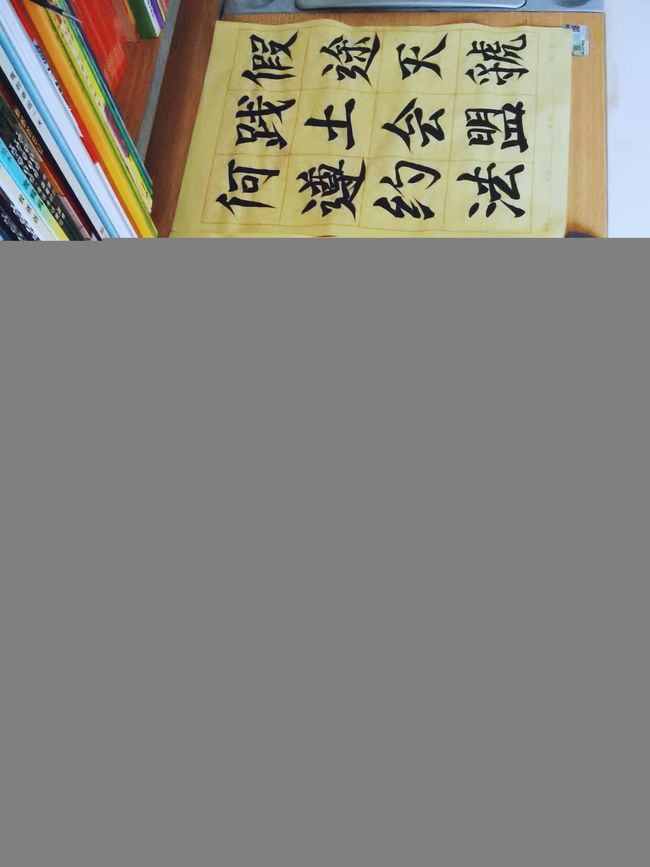 假途灭虢
践土会盟
何遵约法